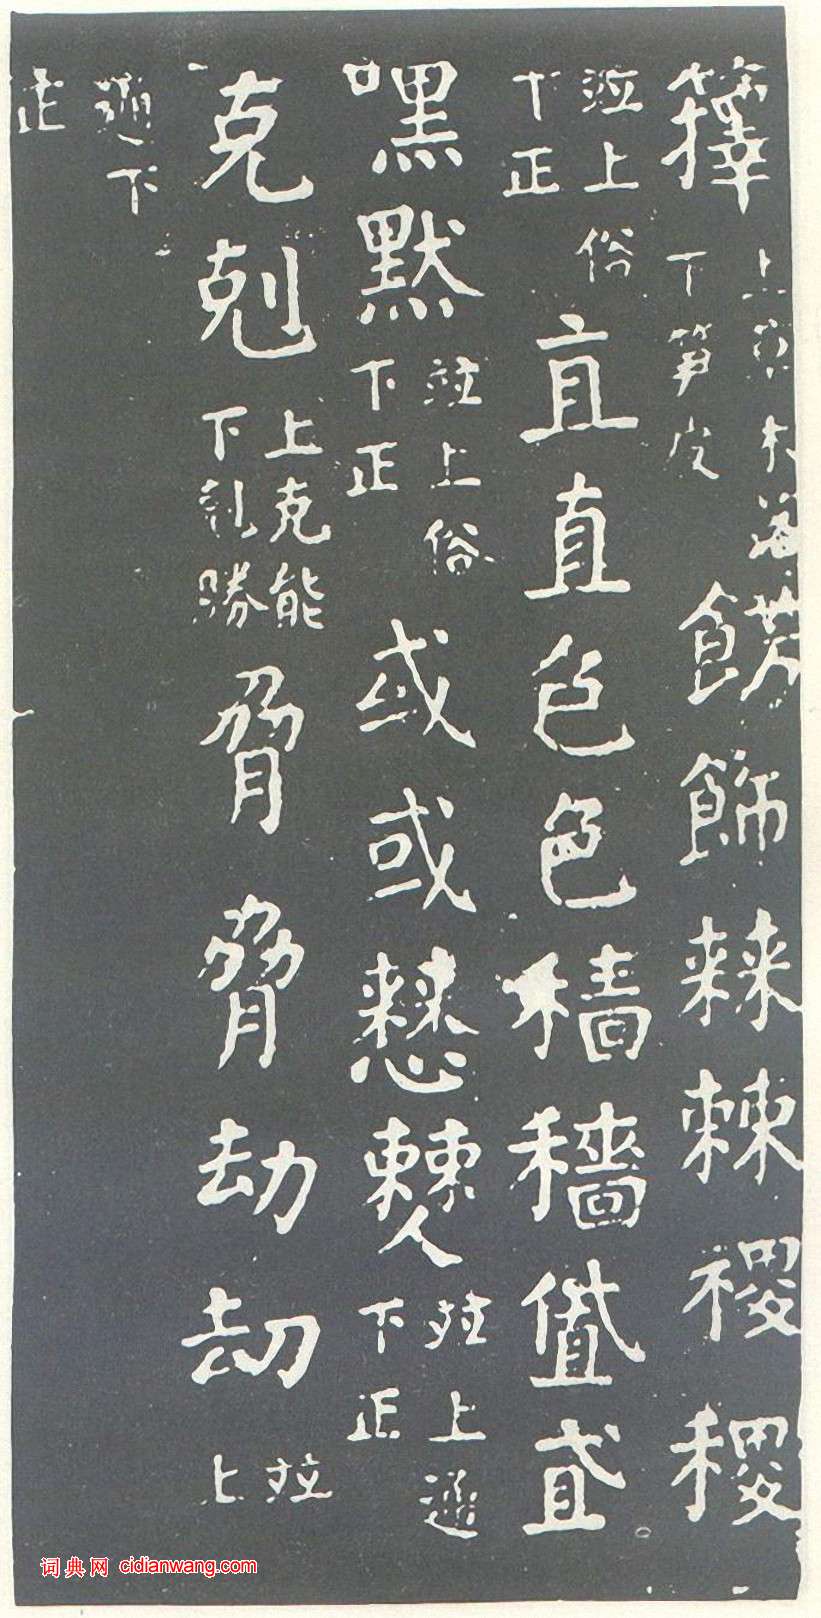 籜上草木落下笋皮飾棘棘稷稷
竝上俗下正直直色色穡穡
嘿默竝上俗下正或或僰竝上通下正
克剋上克能下剋勝脅脅劫刧竝上
通下正
词典网 cidianwang.com